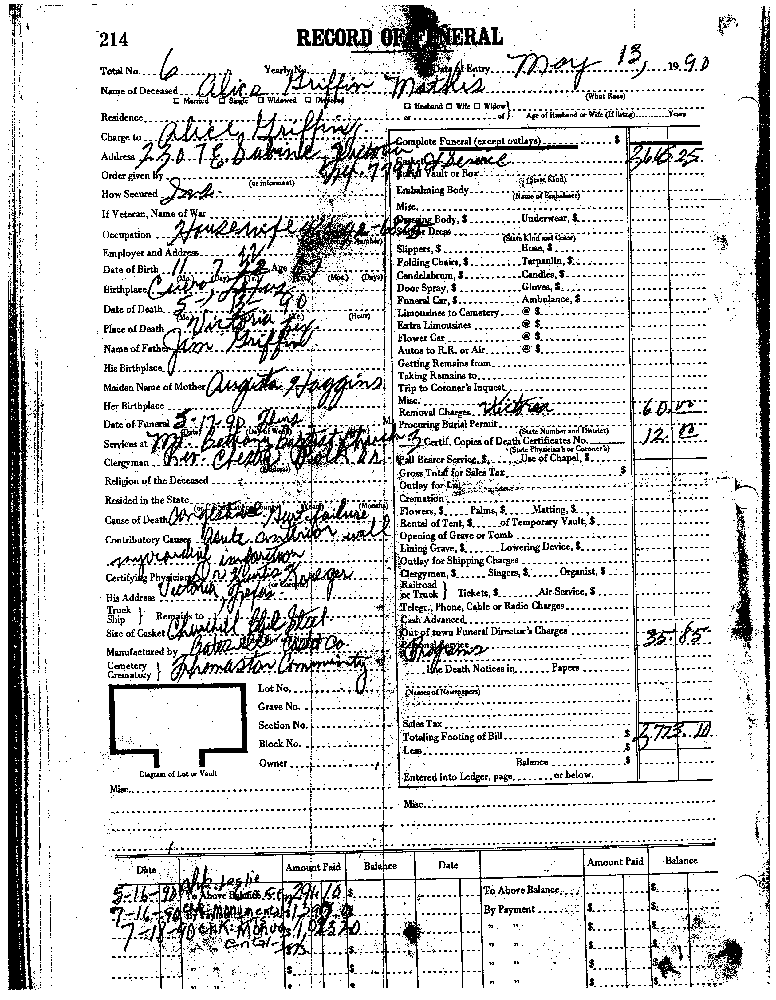 214 RECORD OF FUNERAL
Total No. 6 Yearly No. Date of Entry May 13, 1990
Name of Deceased Alice Griffin Mathis
Married Single Widowed Divorced (What Race)
Husband Wife Widow
or of Age of Husband or Wife (If living) Years
Residence
Charge to Alice Griffin
Address 2307 E. Sabine, Victoria
Order given by
(or informant)
How Secured Ins.
If Veteran, Name of War
Occupation Housewife
Employer and Address
Date of Birth 11 7 22 Age 67
(Mo.) (Days)
Birthplace Cuero, Texas
Date of Death 5-13-90
Place of Death Victoria
(Hour)
Name of Father Jim Griffin
His Birthplace
Maiden Name of Mother Augusta Haggins
Her Birthplace
Date of Funeral 5-17-90 Thurs
Services at Mt. Bethany Baptist Church
Clergyman Rev.
Religion of the Deceased
Resided in the State (Months)
Cause of Death Congestive Heart failure
Contributory Causes Acute anterior wall
myocardial infarction
Certifying Physician Dr.
His Address Victoria, Texas
Truck
Ship } Remains to
Size of Casket Churchill Steel
Manufactured by Batesville Casket Co
Cemetery
Crematory } Thomaston Community
Lot No.
Grave No.
Section No.
Block No.
Owner
Diagram of Lot or Vault
Misc.
Complete Funeral (except outlays) $
Casket & Service 3,665.25
Burial Vault or Box
(State Kind)
Embalming Body
(Name of Embalmer)
Misc.
Dressing Body, $ Underwear, $
Dress
(State Kind and Color)
Slippers, $ Hose, $
Folding Chairs, $ Tarpaulin, $
Candelabrum, $ Candles, $
Door Spray, $ Gloves, $
Funeral Car, $ Ambulance, $
Limousines to Cemetery @ $
Extra Limousines @ $
Flower Car @ $
Autos to R.R. or Air @ $
Getting Remains from
Taking Remains to
Trip to Coroner's Inquest
Misc.
Removal Charges Victoria 60.00
Procuring Burial Permit
(State Number and District)
3 Certif. Copies of Death Certificates No. 12.00
(State Physician's or Coroner's)
Pall Bearer Service, $ Use of Chapel, $
Gross Total for Sales Tax $
Outlay for
Cremation
Flowers, $ Palms, $ Matting, $
Rental of Tent, $ of Temporary Vault, $
Opening of Grave or Tomb
Lining Grave, $ Lowering Device, $
Outlay for Shipping Charges
Clergymen, $ Singers, $ Organist, $
Railroad
or Truck } Tickets, $ Air Service, $
Telegr., Phone, Cable or Radio Charges
Cash Advanced
Out of town Funeral Director's Charges
Programs 35.85
Death Notices in Papers
(Names of Newspapers)
Sales Tax
Totaling Footing of Bill $ 3,773.10
Less $
Balance $
Entered into Ledger, page, or below.
Misc.
Date Amount Paid Balance Date Amount Paid Balance
5-16-90 To Above Balance $ To Above Balance $
7-16-90 By Payment
7-18-90